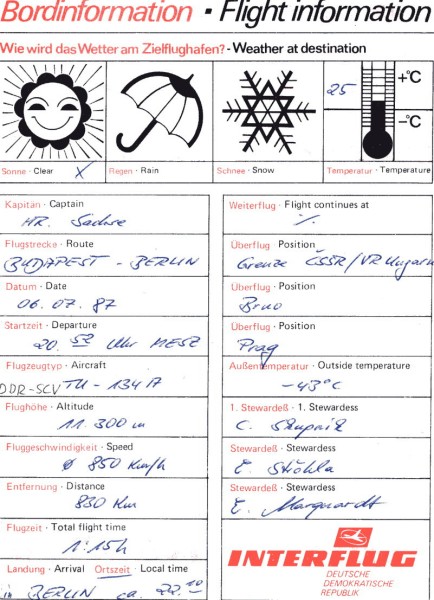 Bordinformation · Flight information
Wie wird das Wetter am Zielflughafen? - Weather at destination
25
+°C
-°C
Sonne · Clear X
Regen · Rain
Schnee · Snow
Temperatur · Temperature
Kapitän · Captain
HR. Sachse
Flugstrecke · Route
BUDAPEST - BERLIN
Datum · Date
06.07.87
Startzeit · Departure
20.52 Uhr MESZ
Flugzeugtyp · Aircraft
DDR-SCV TU-134A
Flughöhe · Altitude
11.300 m
Fluggeschwindigkeit · Speed
Ø 850 km/h
Entfernung · Distance
830 km
Flugzeit · Total flight time
1:15h
Landung · Arrival Ortszeit · Local time
in BERLIN ca. 22.10
Weiterflug · Flight continues at
%
Überflug · Position
Grenze ČSSR/VR Ungarn
Überflug · Position
Brno
Überflug · Position
Prag
Außentemperatur · Outside temperature
-43°C
1. Stewardeß · 1. Stewardess
C.
Stewardeß · Stewardess
E. Ströhla
Stewardeß · Stewardess
E. Marquardt
INTERFLUG
DEUTSCHE
DEMOKRATISCHE
REPUBLIK